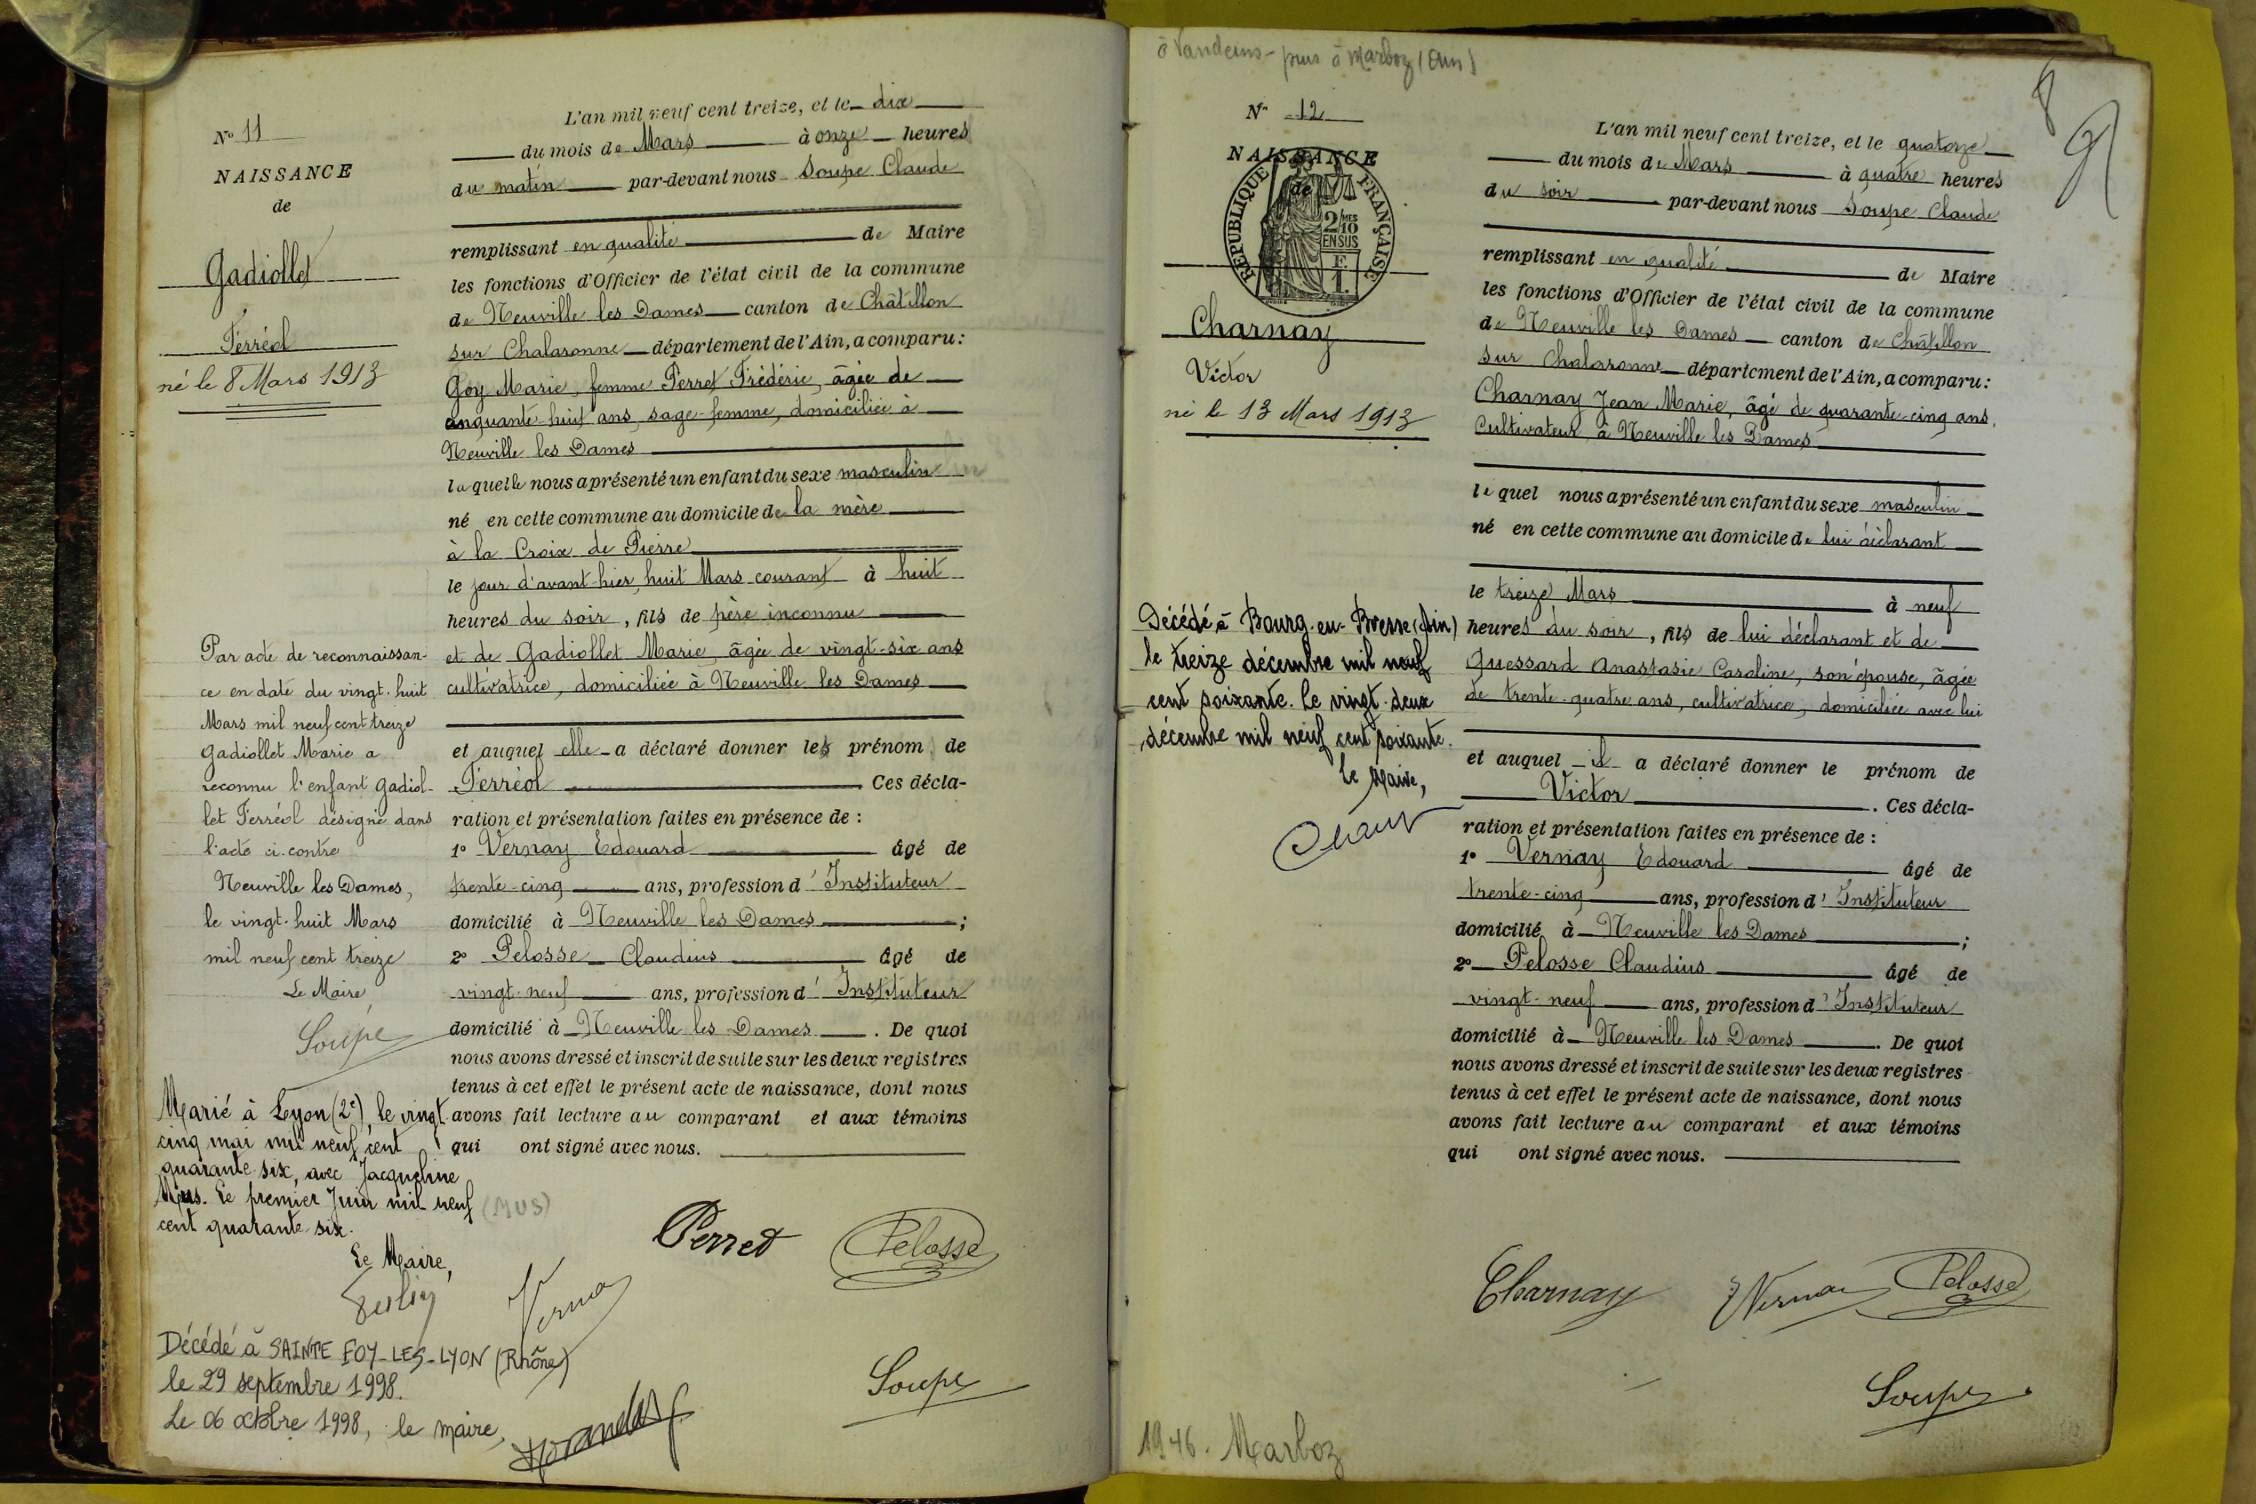 N° 11
NAISSANCE
de
Gadiollet
Ferréol
né le 8 Mars 1913
L'an mil neuf cent treize, et le dix
du mois de Mars à onze heures
du matin par-devant nous Soupe Claude
remplissant en qualité de Maire
les fonctions d'Officier de l'état civil de la commune
de Neuville les Dames canton de Châtillon
sur Chalaronne département de l'Ain, a comparu :
Goy Marie, femme Perret Frédéric, âgée de
cinquante-huit ans, sage-femme, domiciliée à
Neuville les Dames
laquelle nous a présenté un enfant du sexe masculin
né en cette commune au domicile de la mère
à la Croix de Pierre
le jour d'avant-hier, huit Mars courant à huit
heures du soir, fils de père inconnu
et de Gadiollet Marie, âgée de vingt-six ans
cultivatrice, domiciliée à Neuville les Dames
et auquel elle a déclaré donner les prénom de
Ferréol Ces décla-
ration et présentation faites en présence de :
1° Vernay Edouard âgé de
trente-cinq ans, profession d'Instituteur
domicilié à Neuville les Dames ;
2° Pelosse Claudius âgé de
vingt-neuf ans, profession d'Instituteur
domicilié à Neuville les Dames . De quoi
nous avons dressé et inscrit de suite sur les deux registres
tenus à cet effet le présent acte de naissance, dont nous
avons fait lecture au comparant et aux témoins
qui ont signé avec nous.
Par acte de reconnaissan-
ce en date du vingt-huit
Mars mil neuf cent treize
Gadiollet Marie a
reconnu l'enfant Gadiol-
let Ferréol désigné dans
l'acte ci-contre
Neuville les Dames,
le vingt-huit Mars
mil neuf cent treize
Le Maire
Soupe
Marié à Lyon (2e), le vingt
cinq mai mil neuf cent
quarante-six, avec Jacqueline
Mus. Le premier Juin mil neuf
cent quarante-six.
(MUS)
Le Maire,
Perret
Pelosse
Vernay
Soupe
Décédé à SAINTE FOY-LES-LYON (Rhône)
le 29 septembre 1998.
Le 06 octobre 1998, le maire,
à Vandeins - puis à Marboz (Ain)
8
N° 12
NAISSANCE
de
RÉPUBLIQUE FRANÇAISE
2/10 MES
EN SUS
F.
1.
Charnay
Victor
né le 13 Mars 1913
L'an mil neuf cent treize, et le quatorze
du mois de Mars à quatre heures
du soir par-devant nous Soupe Claude
remplissant en qualité de Maire
les fonctions d'Officier de l'état civil de la commune
de Neuville les Dames canton de Châtillon
sur Chalaronne département de l'Ain, a comparu :
Charnay Jean Marie, âgé de quarante-cinq ans,
Cultivateur à Neuville les Dames
lequel nous a présenté un enfant du sexe masculin
né en cette commune au domicile de lui déclarant
le treize Mars à neuf
heures du soir, fils de lui déclarant et de
Guessard Anastasie Caroline, son épouse, âgée
de trente-quatre ans, cultivatrice, domiciliée avec lui
et auquel il a déclaré donner le prénom de
Victor . Ces décla-
ration et présentation faites en présence de :
1° Vernay Edouard âgé de
trente-cinq ans, profession d'Instituteur
domicilié à Neuville les Dames ;
2° Pelosse Claudius âgé de
vingt-neuf ans, profession d'Instituteur
domicilié à Neuville les Dames . De quoi
nous avons dressé et inscrit de suite sur les deux registres
tenus à cet effet le présent acte de naissance, dont nous
avons fait lecture au comparant et aux témoins
qui ont signé avec nous.
Décédé à Bourg-en-Bresse (Ain)
le treize décembre mil neuf
cent soixante. Le vingt-deux
décembre mil neuf cent soixante.
Le Maire,
Charnay
Vernay
Pelosse
Soupe
1946. Marboz